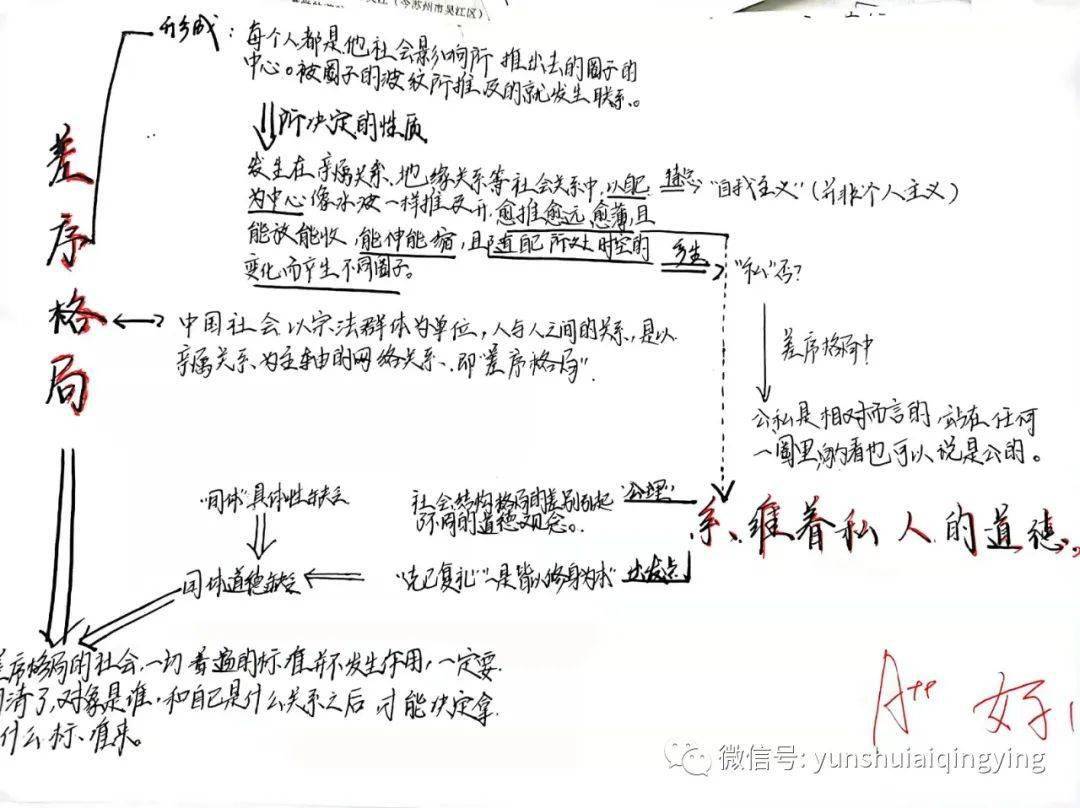 (今苏州市吴江区)
形成：每个人都是他社会影响所推出去的圈子的
中心。被圈子的波纹所推及的就发生联系。
所决定的性质
发生在亲属关系、地缘关系等社会关系中，以己
为中心像水波一样推及开，愈推愈远，愈薄，且
能放能收，能伸能缩，且随自己所处时空的
变化而产生不同圈子。
"自我主义"(并非个人主义)
产生
"私"否？
差序格局
中国社会以宗法群体为单位，人与人之间的关系，是以
亲属关系为主轴的网络关系，即"差序格局".
差序格局中
公私是相对而言的，站在任何
一圈里向内看也可以说是公的。
"团体"具体性缺乏
社会结构格局的差别引起
不同的道德观念。
"公理"
系维着私人的道德。
团体道德缺乏
"克己复礼""一是皆以修身为本"
出发点
差序格局的社会，一切普遍的标准并不发生作用，一定要
问清了，对象是谁，和自己是什么关系之后才能决定拿
什么标准来。
A++ 好
微信号: yunshuiaiqingying